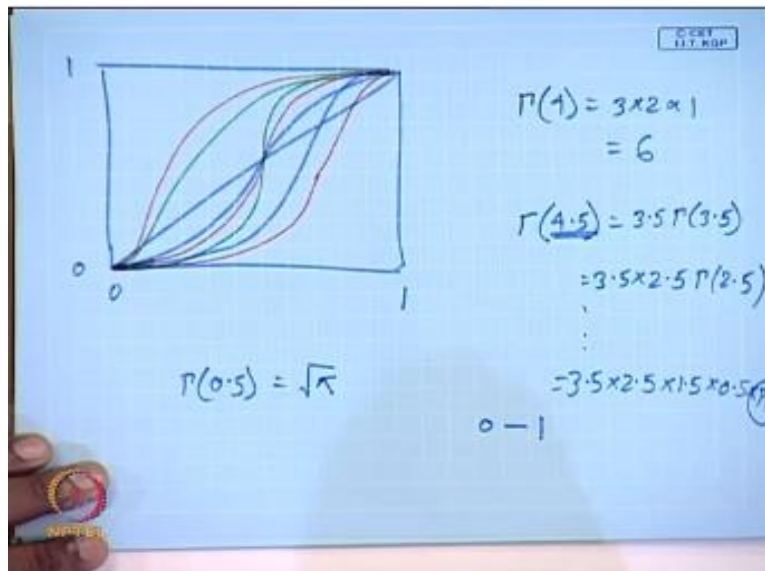 © CET
I.I.T. KGP
1
0
0
1
Γ(4) = 3×2×1
= 6
Γ(4.5) = 3.5 Γ(3.5)
= 3.5×2.5 Γ(2.5)
= 3.5×2.5×1.5×0.5
Γ(0.5) = √π
0 — 1
NPTEL